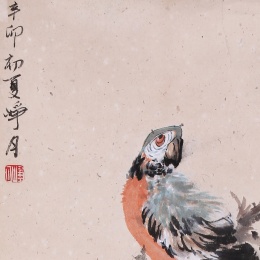 辛卯初夏崢月